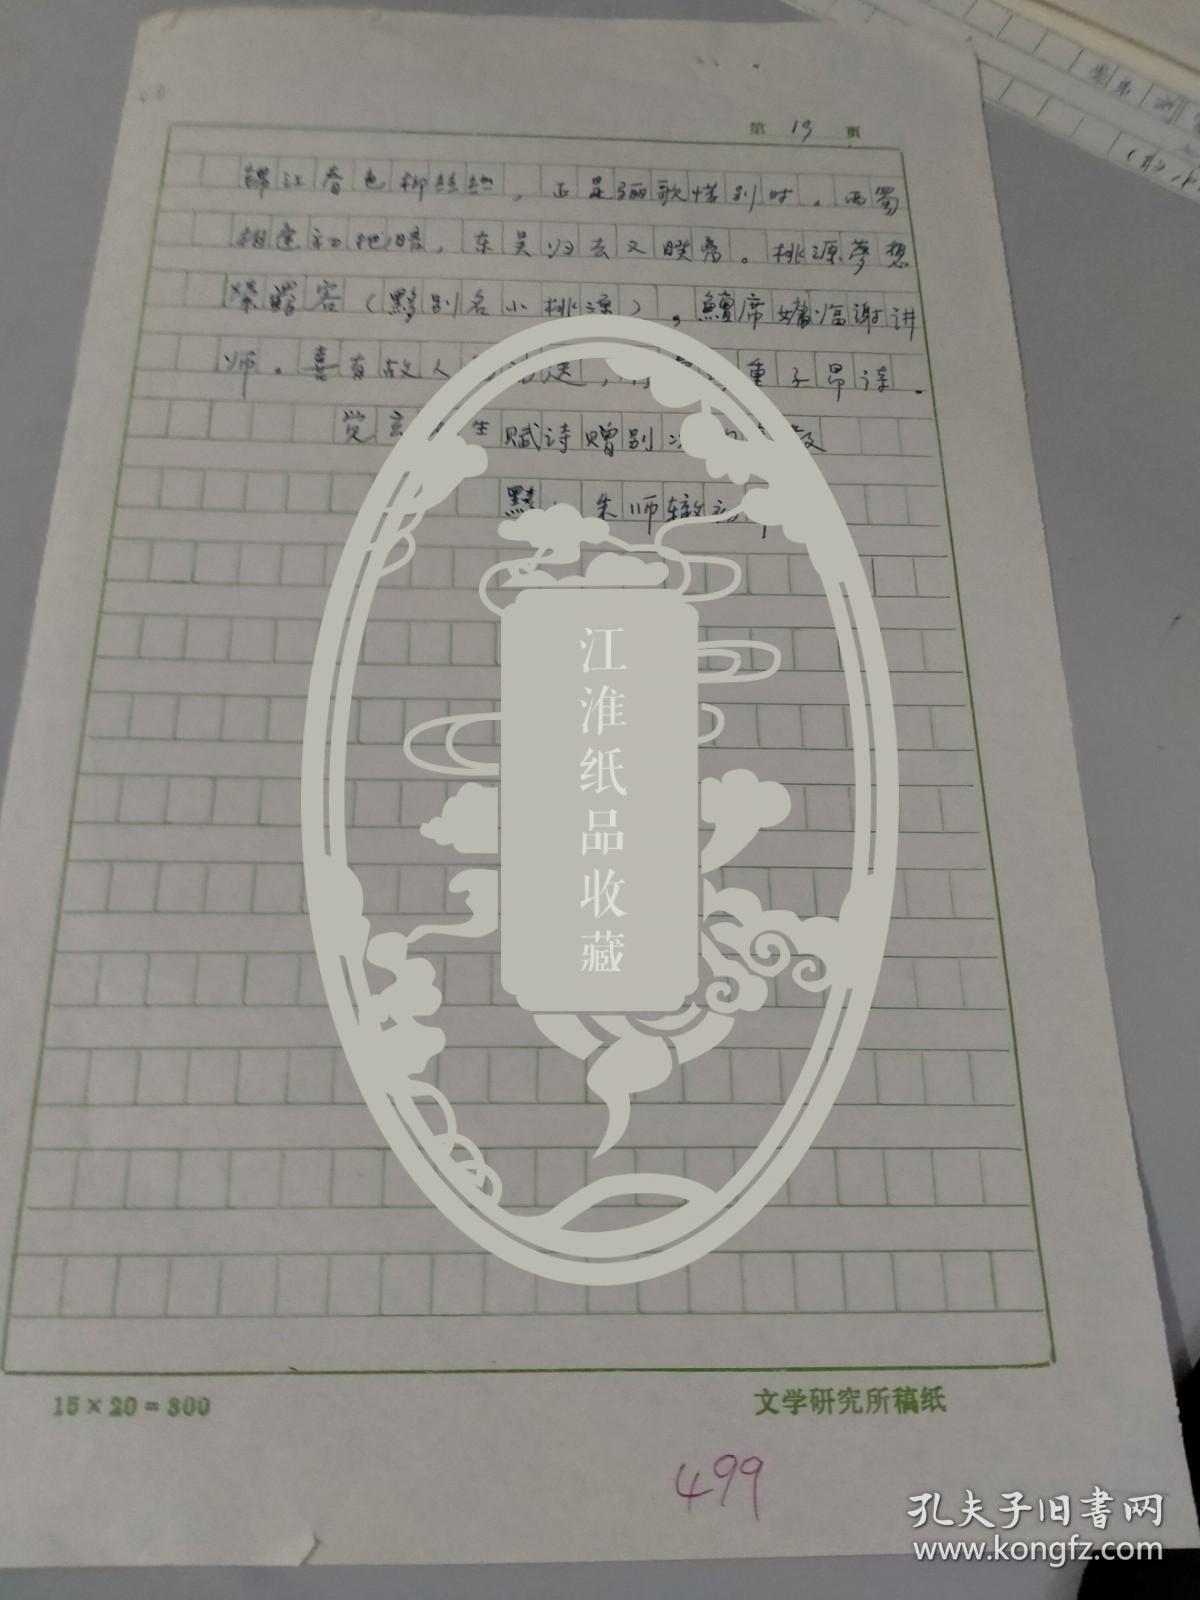 第 19 页
锦江春色柳丝丝，正是骊歌惜别时。西蜀
相逢初把晤，东吴归去又暌离。桃源梦想
容（黟别名小桃源），鳣席临谢讲
师。喜有故人送，重子昂诗。
赋诗赠别
黟 朱师辙
江淮纸品收藏
15×20=300
文学研究所稿纸
499
孔夫子旧书网
www.kongfz.com